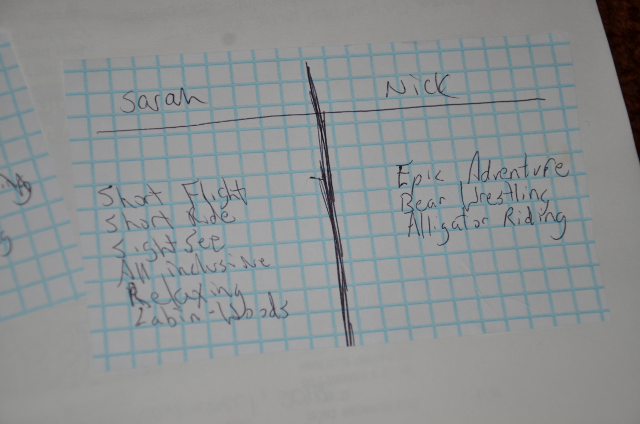 Sarah
Nick
Short Flight
Short Ride
SightSee
All inclusive
Relaxing
Cabin-Woods
Epic Adventure
Bear Wrestling
Alligator Riding